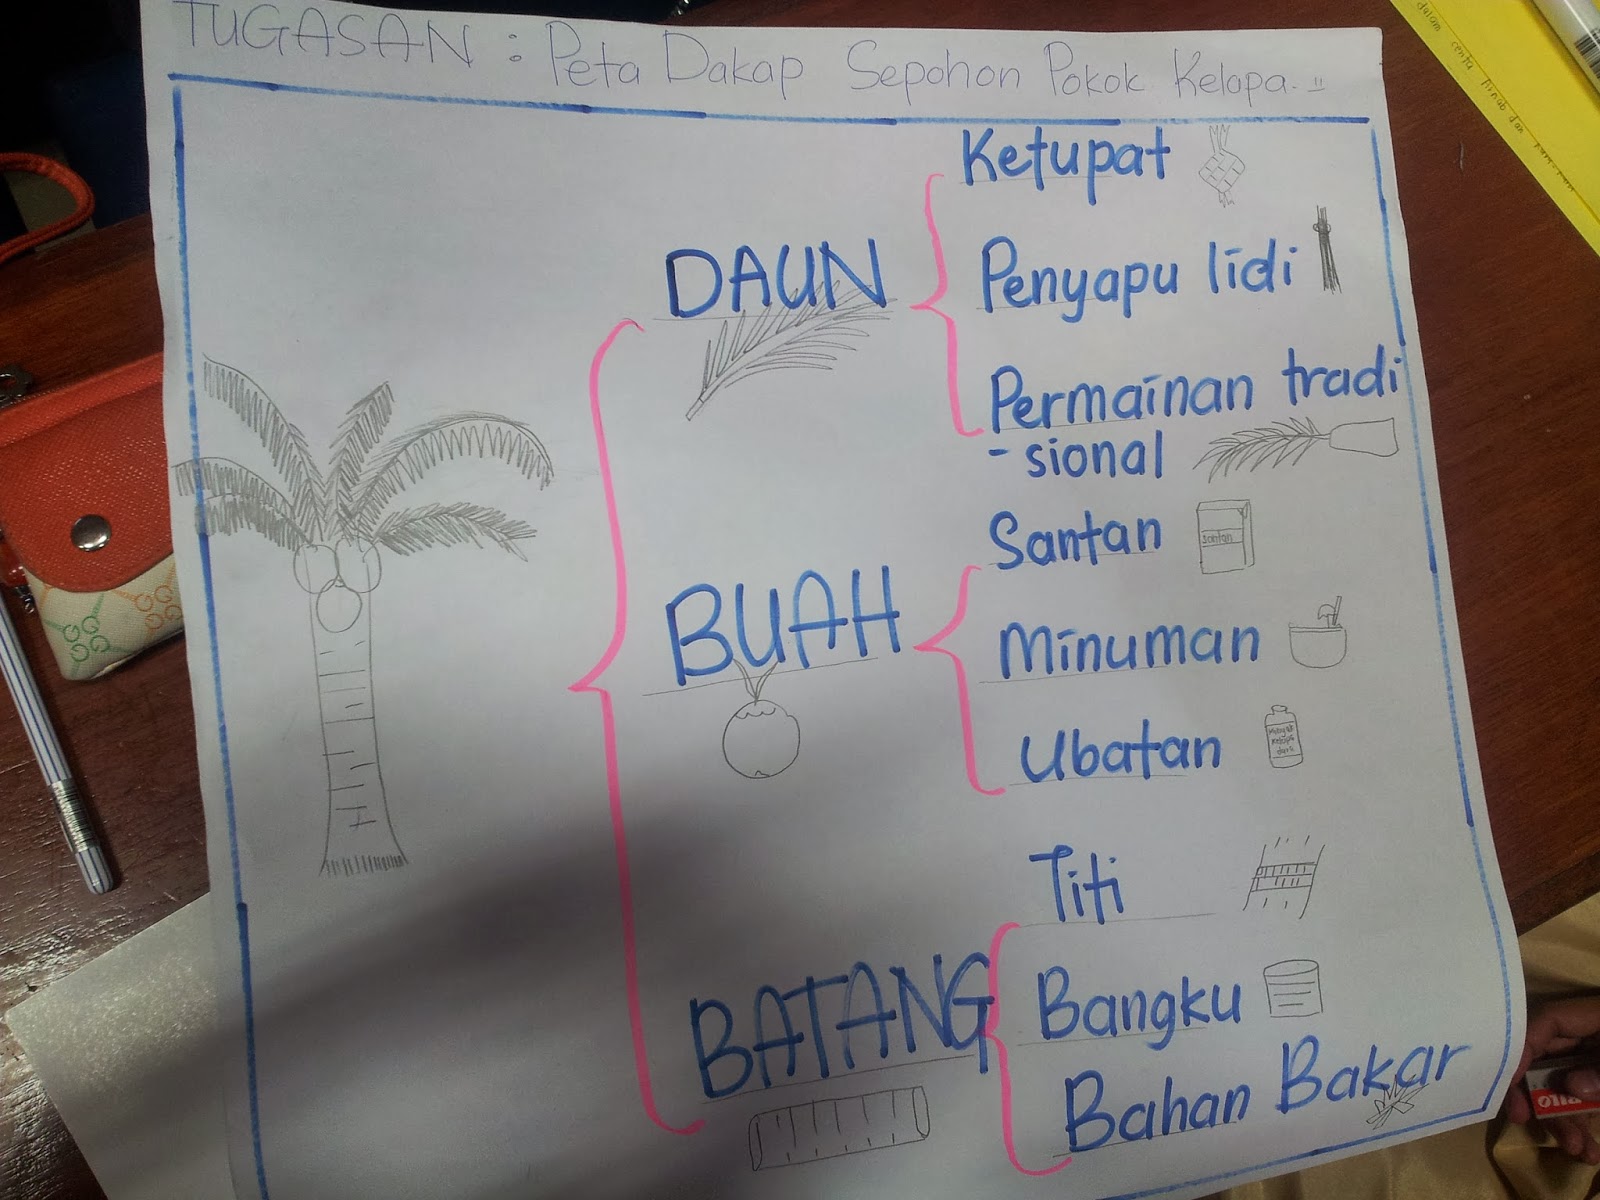 TUGASAN : Peta Dakap Sepohon Pokok Kelapa..
DAUN
Ketupat
Penyapu lidi
Permainan tradi
- sional
BUAH
Santan
santan
Minuman
Ubatan
Minyak
kelapa
dara
BATANG
Titi
Bangku
Bahan Bakar
dalam cerita
dan